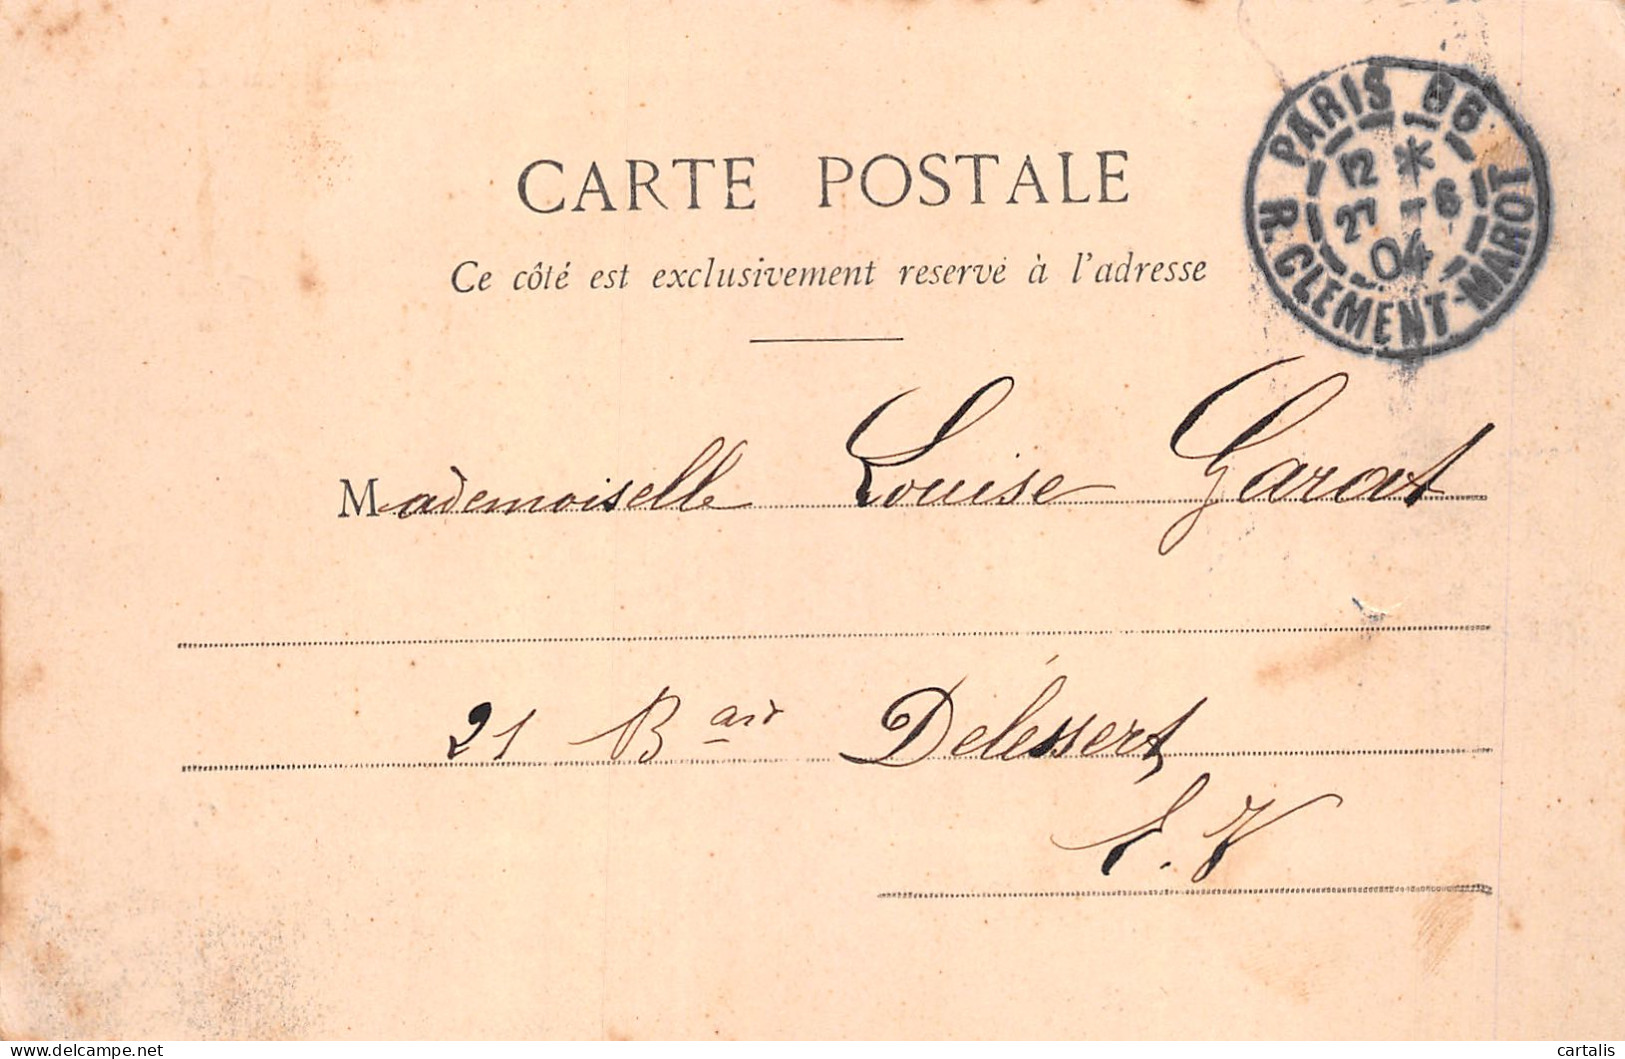 CARTE POSTALE
Ce côté est exclusivement reservé à l'adresse
PARIS
12 *
27 -6
04
R. CLEMENT-MAROT
Mademoiselle Louise Garat
21 Bard Delessert
E.V
www.delcampe.net
cartalis